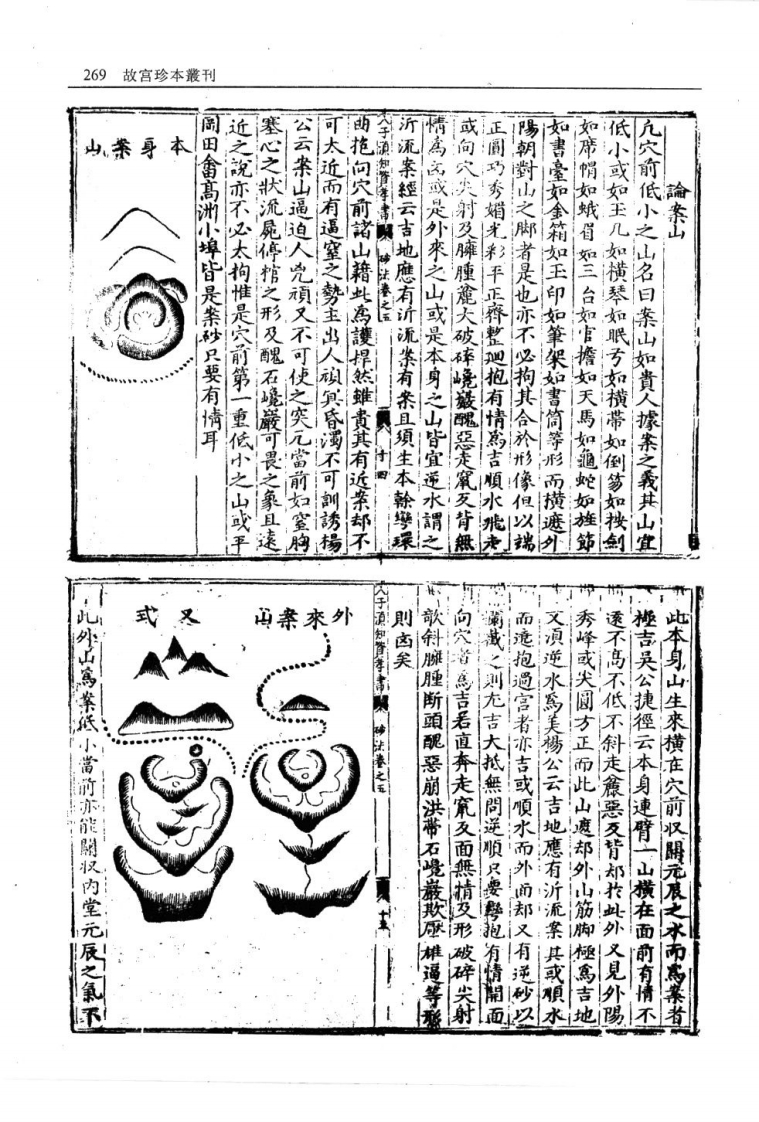 269 故宮珍本叢刊
論案山
凢穴前低小之山名曰案山如貴人據案之義其山宜
低小或如玉几如横琴如眠弓如横帶如倒笏如按劍
如席帽如蛾眉如三台如官擔如天馬如龜蛇如旌節
如書臺如金箱如玉印如筆架如書筒等形而横遮外
陽朝對山之脚者是也亦不必拘其合於形像但以端
正圓巧秀媚光彩平正齊整廻抱有情爲吉順水飛走
或向穴尖射及臃腫麄大破碎巉巖醜惡走竄反背無
情爲凶或是外來之山或是本身之山皆宜逆水謂之
沂流案經云吉地應有沂流案有案且須生本幹彎環
人子須知資孝書 砂法卷之五 十四
曲抱向穴前諸山藉此爲護捍然雖貴其有近案却不
可太近而有逼窒之勢主出人頑冥昏濁不可訓誘楊
公云案山逼迫人兇頑又不可使之突兀當前如窒胸
塞心之狀流屍停棺之形及醜石巉巖可畏之象且遠
近之說亦不必太拘惟是穴前第一重低小之山或平
岡田畲髙洲小埠皆是案砂只要有情耳
本身案山
此本身山生來横在穴前収關元辰之水而爲案者
極吉吳公捷徑云本身連臂一山横在面前有情不
遠不髙不低不斜走麄惡反背却扵此外又見外陽
秀峰或尖圓方正而此山遮却外山筋脚極爲吉地
又須逆水爲美楊公云吉地應有沂流案其或順水
而遶抱過宫者亦吉或順水而外面却又有逆砂以
攔截之則尢吉大抵無問逆順只要彎抱有情開面
向穴者爲吉若直奔走竄反面無情及形破碎尖射
欹斜臃腫断頭醜惡崩洪帶石巉巖欺壓雄逼等形
則凶矣
人子須知資孝書 砂法卷之五 十五
外來案山
又式
此外山爲案低小當前亦能關収内堂元辰之氣不